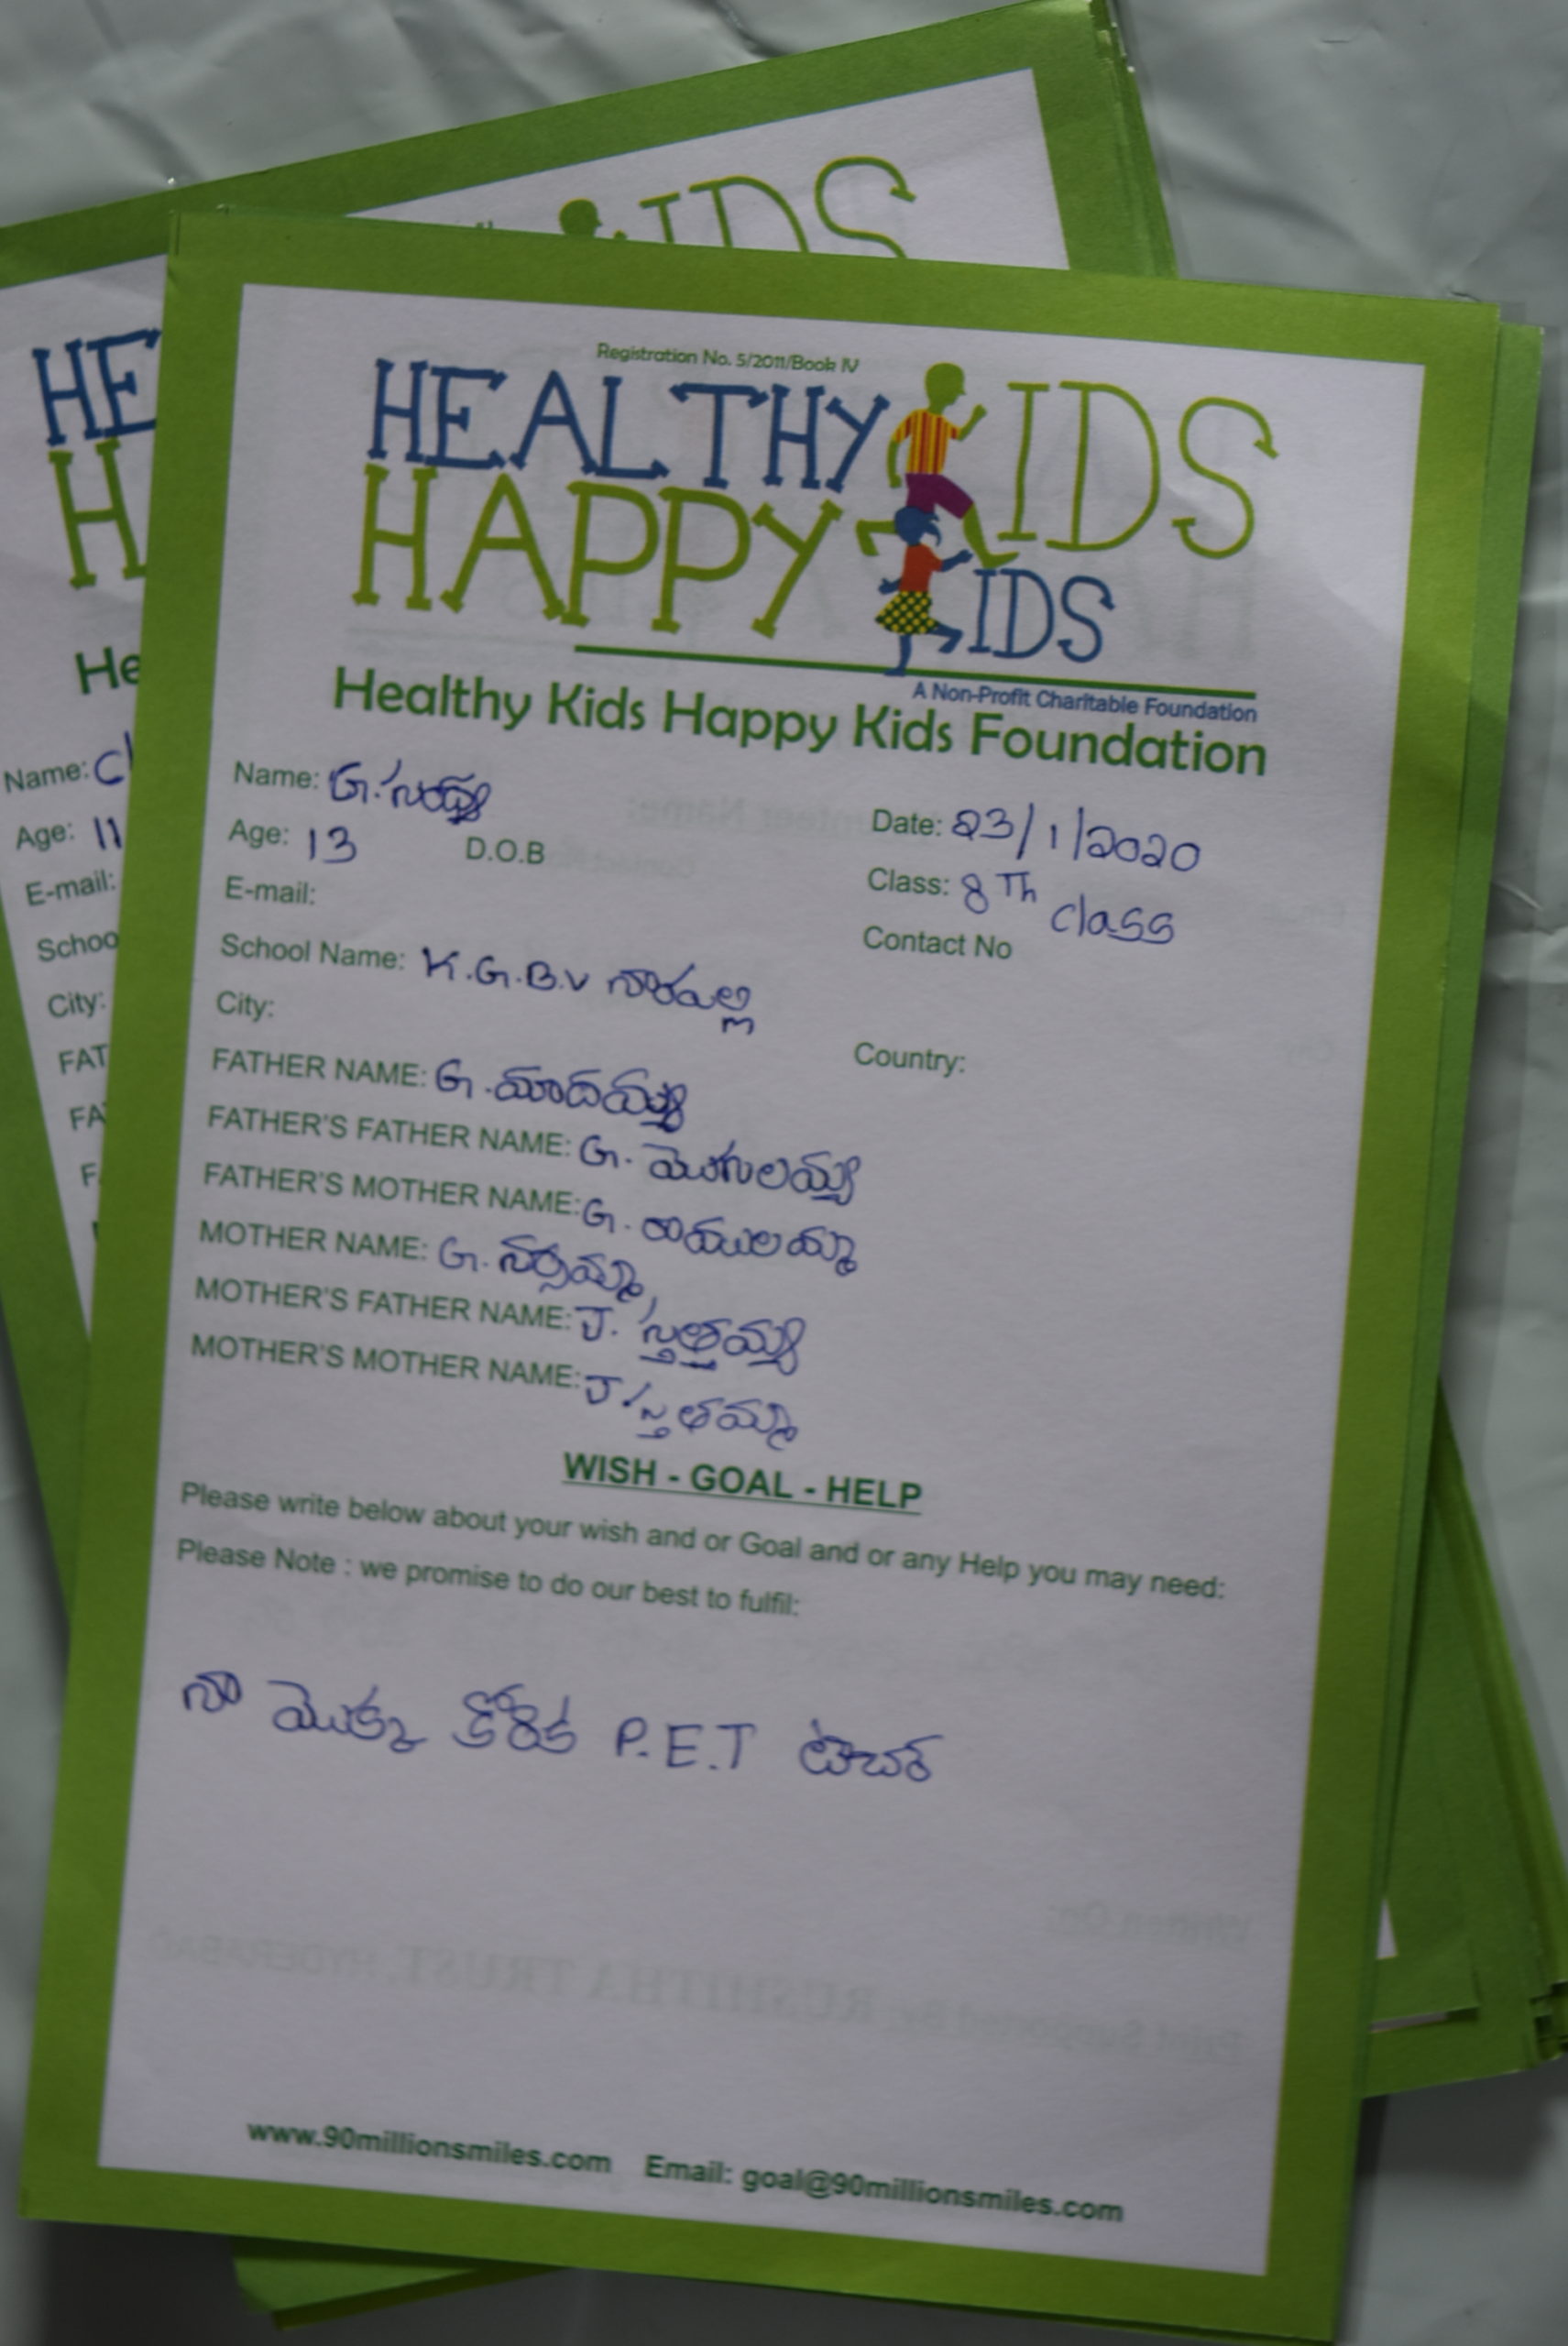 IDS
HE
H
He
Name:
Age: 11
E-mail:
City:
Registration No. 5/2011/Book IV
HEALTHY KIDS
HAPPY KIDS
A Non-Profit Charitable Foundation
Healthy Kids Happy Kids Foundation
Name: G. సంధ్య
Date: 23/1/2020
Age: 13 D.O.B
Class: 8Th class
E-mail:
Contact No
School Name: K.G.B.V నారపల్లి
City:
Country:
FATHER NAME: G. మాదయ్య
FATHER'S FATHER NAME: G. మొగులయ్య
FATHER'S MOTHER NAME: G.
MOTHER NAME: G. నర్సమ్మ
MOTHER'S FATHER NAME: J.
MOTHER'S MOTHER NAME: J
WISH - GOAL - HELP
Please write below about your wish and or Goal and or any Help you may need:
Please Note : we promise to do our best to fulfil:
నా మొక్క కోరిక P.E.T టీచర్
www.90millionsmiles.com Email: goal@90millionsmiles.com